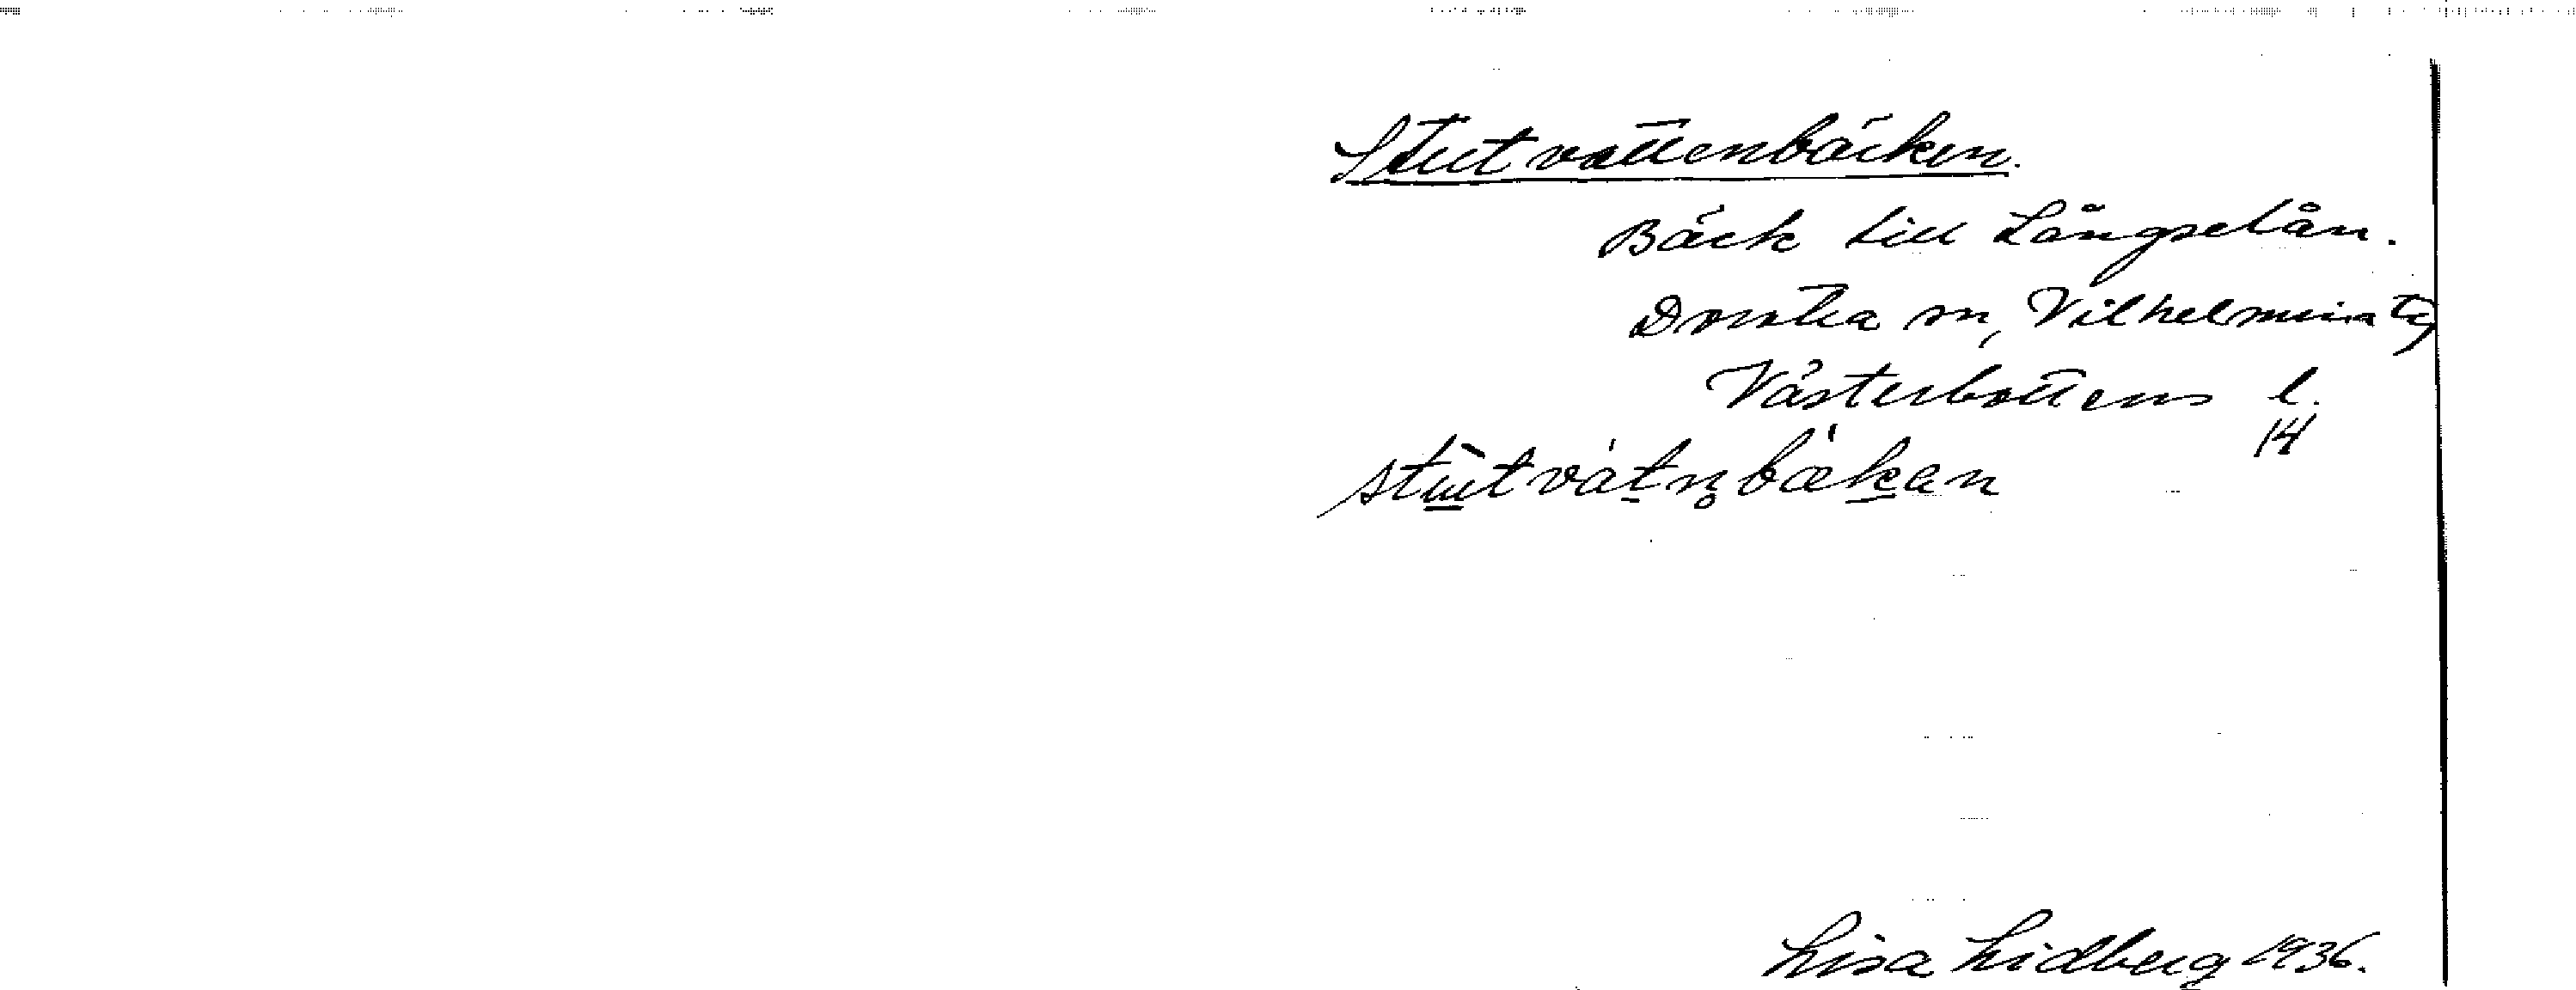 Stutvattenbäcken.
Bäck till Långselån.
Dorotea sn, Vilhelmina tg
Västerbottens l.
14
stu̲tvàt̲n̥bæ̀k̲an
Lisa Lidberg 1936.